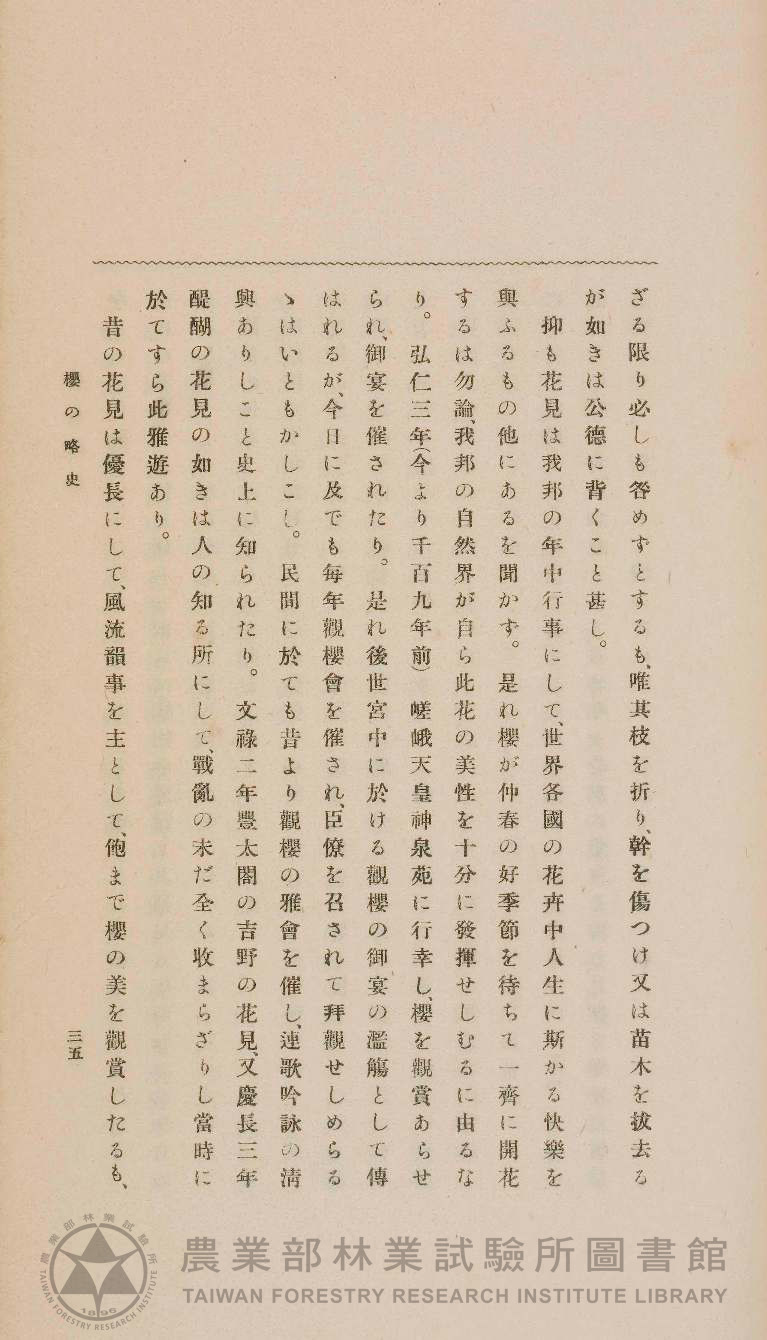 ざる限り必しも咎めずとするも、唯其枝を折り、幹を傷つけ又は苗木を拔去る
が如きは公德に背くこと甚し。
抑も花見は我邦の年中行事にして、世界各國の花卉中人生に斯かる快樂を
與ふるもの他にあるを聞かず。是れ櫻が仲春の好季節を待ちて一齊に開花
するは勿論、我邦の自然界が自ら此花の美性を十分に發揮せしむるに由るな
り。弘仁三年(今より千百九年前)嵯峨天皇神泉苑に行幸し、櫻を觀賞あらせ
られ、御宴を催されたり。是れ後世宮中に於ける觀櫻の御宴の濫觴として傳
はれるが、今日に及でも每年觀櫻會を催され、臣僚を召されて拜觀せしめらる
ゝはいともかしこし。民間に於ても昔より觀櫻の雅會を催し、連歌吟詠の淸
興ありしこと史上に知られたり。文祿二年豐太閤の吉野の花見、又慶長三年
醍醐の花見の如きは人の知る所にして、戰亂の未だ全く收まらざりし當時に
於てすら此雅遊あり。
昔の花見は優長にして、風流韻事を主として、飽まで櫻の美を觀賞したるも、
櫻の略史
三五
農業部林業試驗所圖書館
TAIWAN FORESTRY RESEARCH INSTITUTE LIBRARY
農業部林業試驗所
TAIWAN FORESTRY RESEARCH INSTITUTE
1896